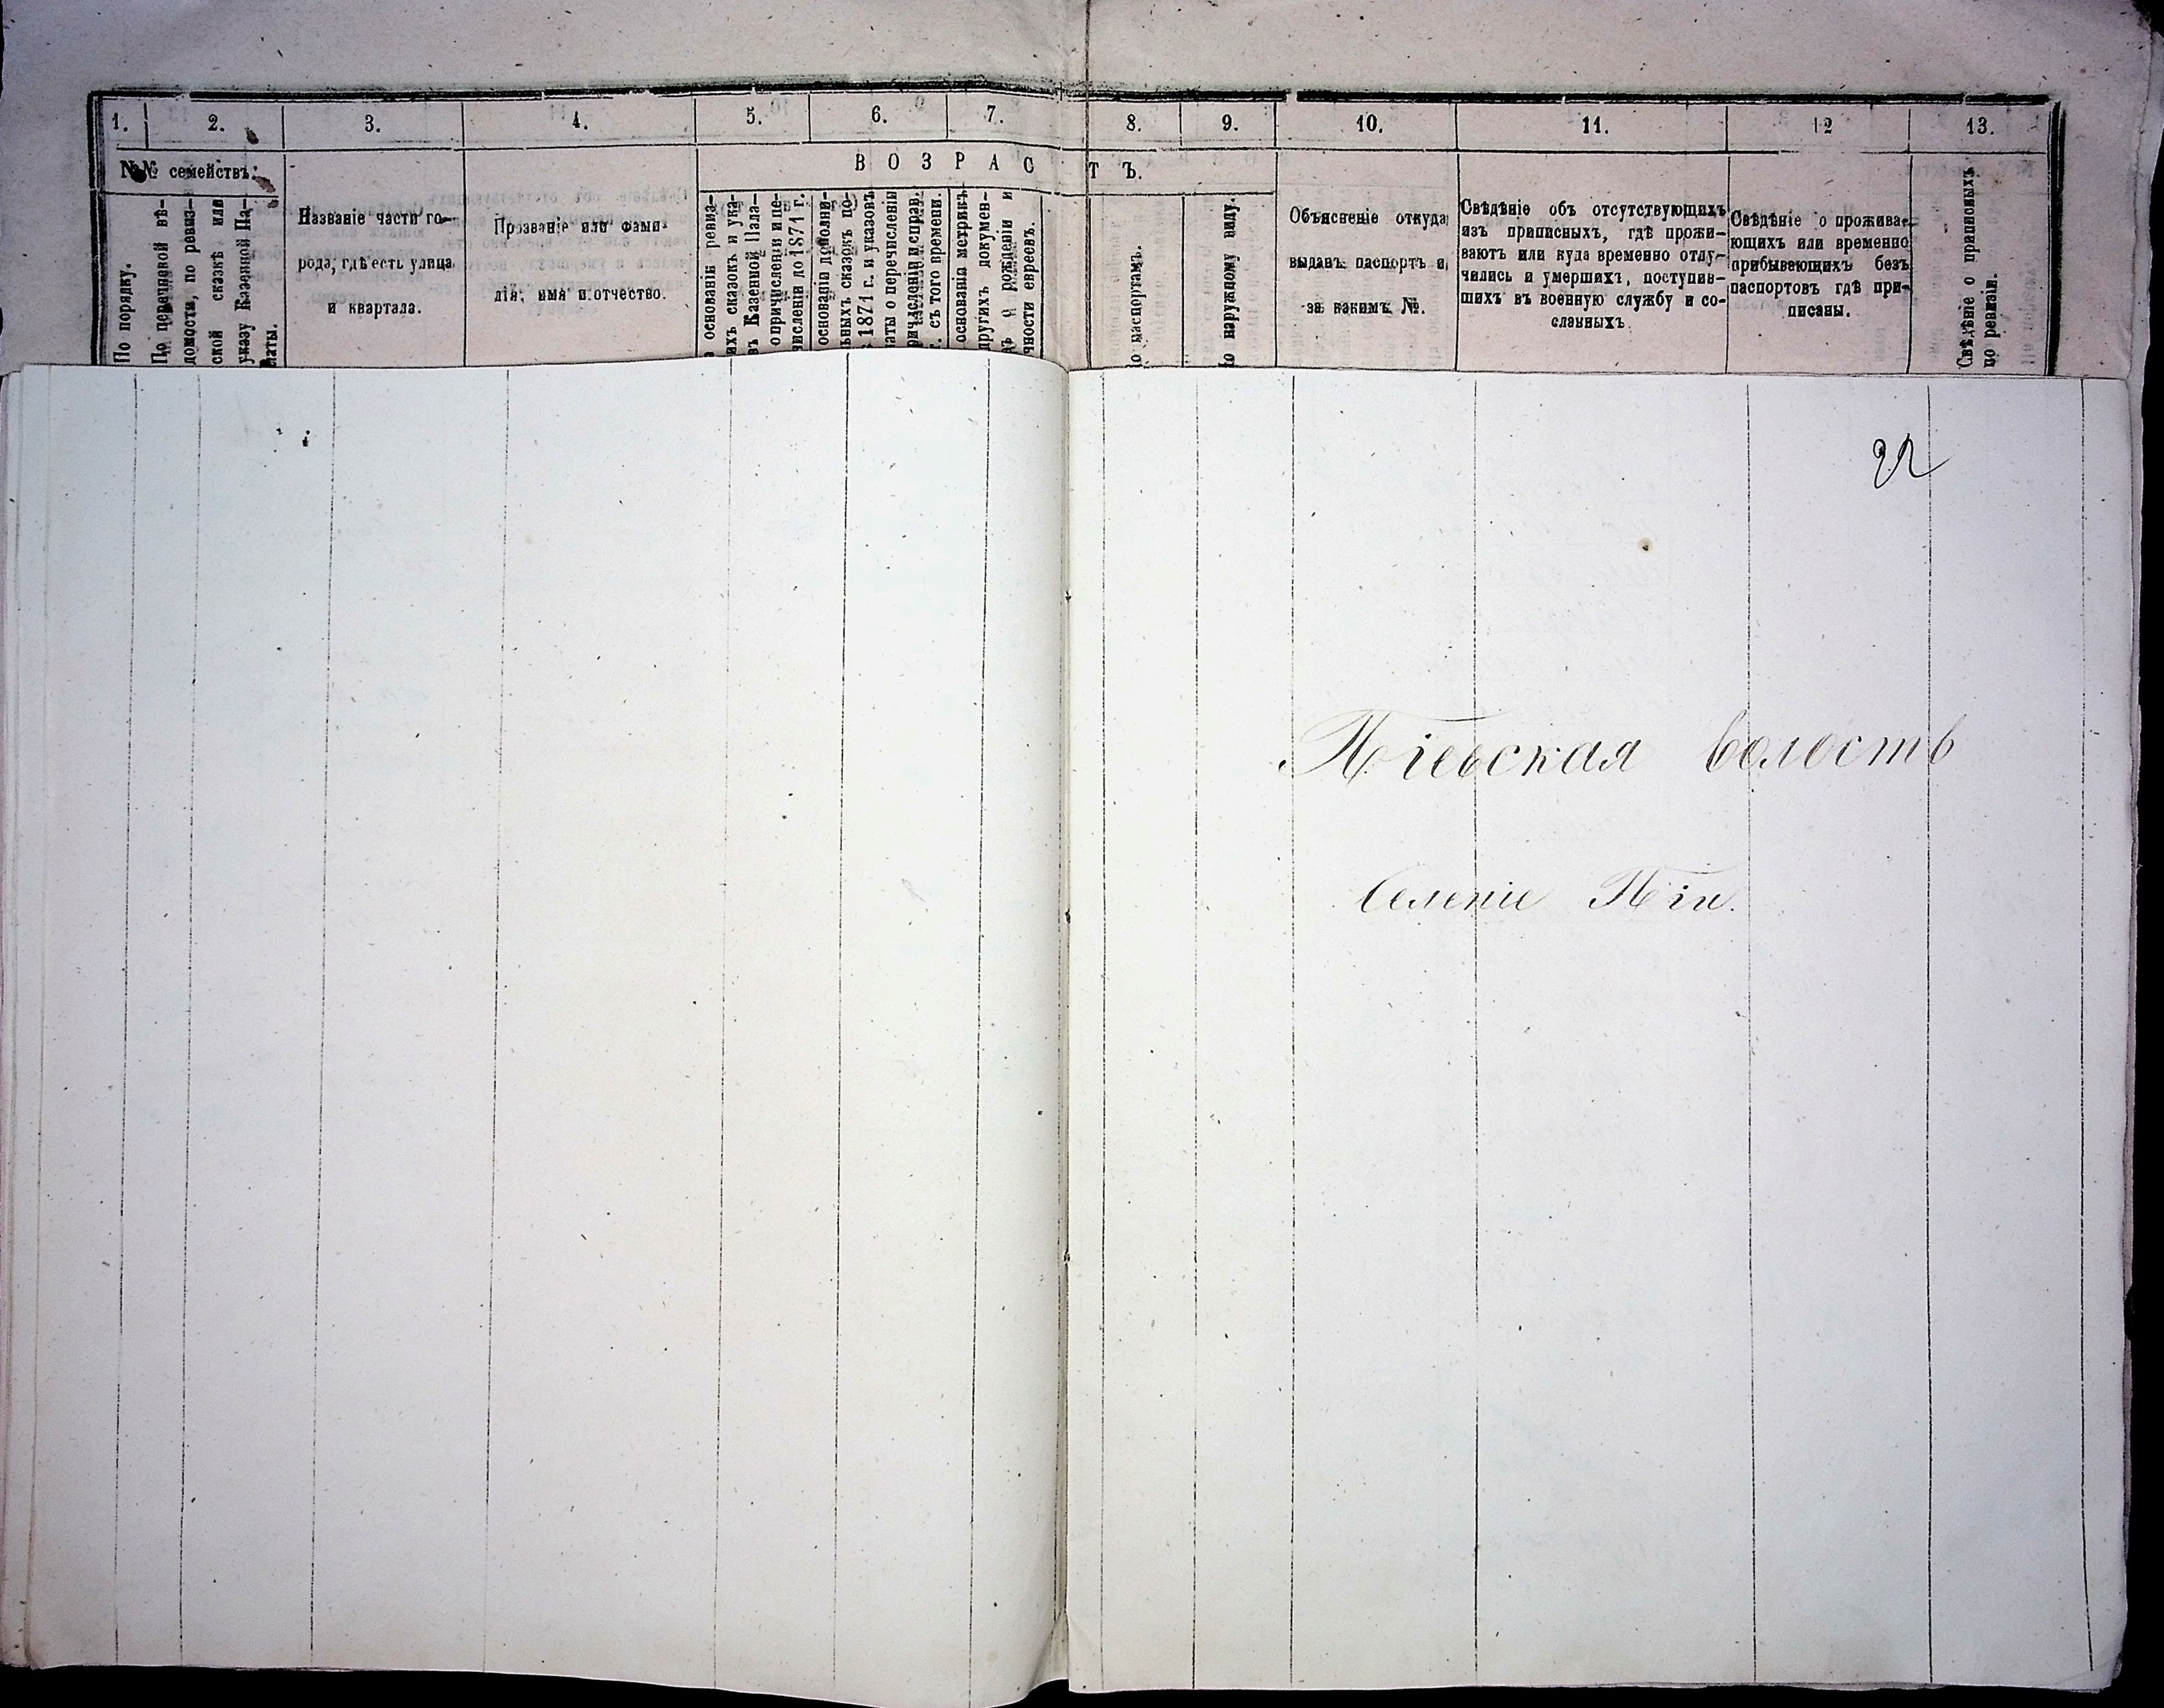 1. 2. 3. 4. 5. 6. 7. 8. 9. 10. 11. 12 13.
№№ семействъ.
ВОЗРАСТЪ.
По порядку.
По перечневой вѣ-
домости, по ревиз-
ской сказкѣ или
указу Казенной Па-
латы.
Названіе части го-
рода, гдѣ есть улица
и квартала.
Прозваніе или фами-
лія, имя и отчество.
основаніи ревиз-
ихъ сказокъ и ука-
въ Казенной Пала-
о причисленіи и пе-
численіи до 1871 г.
основаніи дополни-
ьныхъ сказокъ по-
1871 г. и указовъ
латы о перечисленіи
ричисленіи и справ.
съ того времени.
основаніи метрикъ
другихъ докумен-
ъ о рожденіи и
чности евреевъ.
о паспортамъ.
о наружному виду.
Объясненіе откуда
выданъ паспортъ и
за какимъ №.
Свѣдѣніе объ отсутствующихъ
изъ приписныхъ, гдѣ прожи-
ваютъ или куда временно отлу-
чились и умершихъ, поступив-
шихъ въ военную службу и со-
сланныхъ
Свѣдѣніе о прожива-
ющихъ или временно
прибывающихъ безъ
паспортовъ гдѣ при-
писаны.
Свѣдѣніе о приписныхъ
по ревизіи.
22
волость
Селеніе